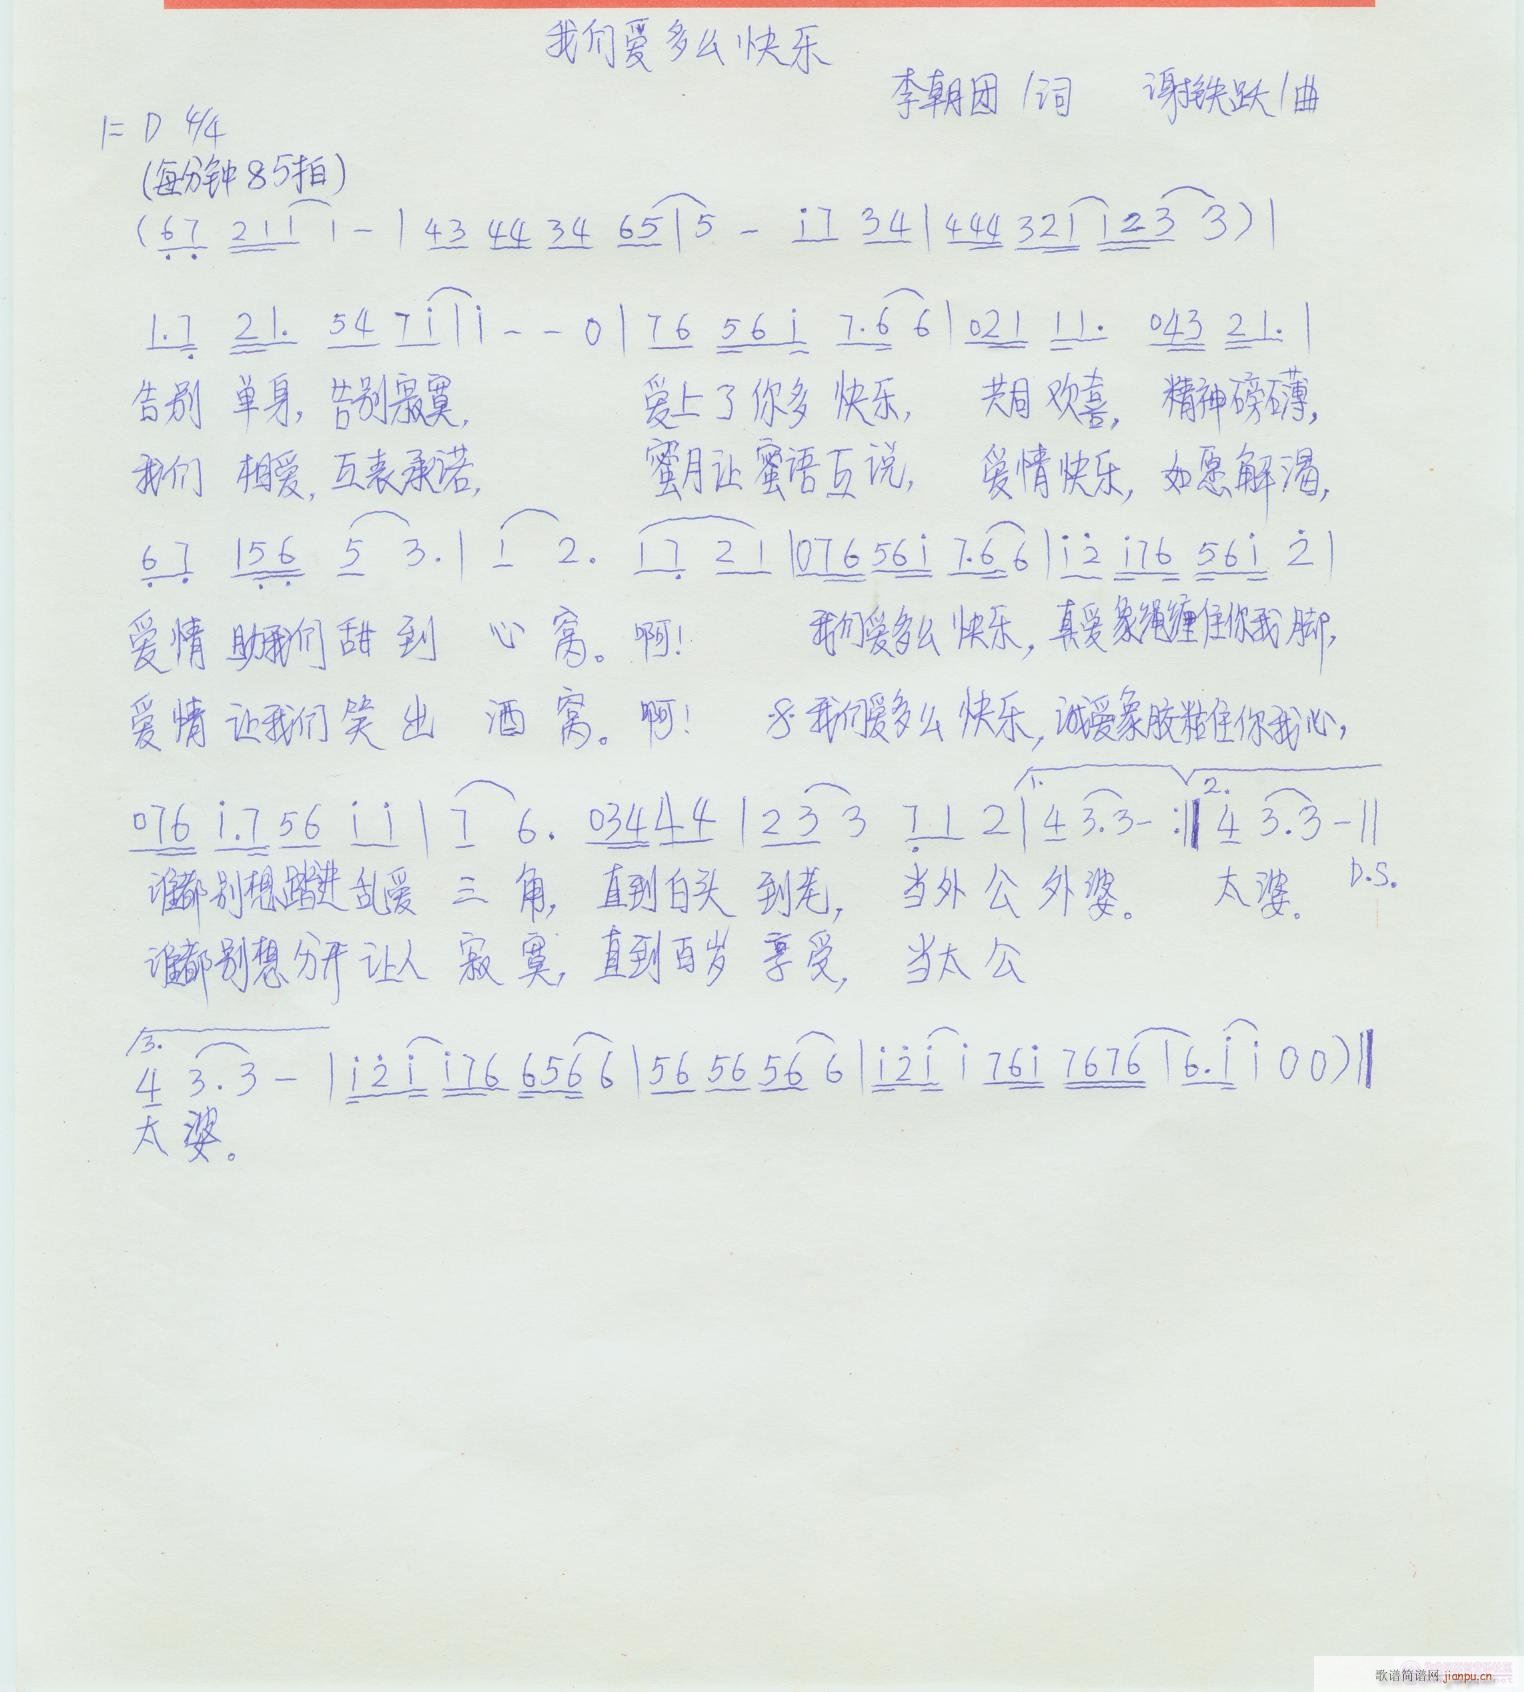 我们爱多么快乐
李朝团/词 谢铁跃/曲
1=D 4/4
(每分钟85拍)
(67 211 1-|43 44 34 65|5 - i7 34|444 321 123 3)|
1.7 21. 54 7i|i--0|76 56i 7.6 6|021 11. 043 21.|
告别 单身, 告别寂寞, 爱上了你多 快乐, 共同欢喜, 精神磅礴,
我们 相爱, 互表承诺, 蜜月让蜜语互说, 爱情快乐, 如愿解渴,
67 156 5 3.|1 2. 17 21|076 56i 7.6 6|i2 i76 56i 2|
爱情 助我们甜到 心窝。啊! 我们爱多么快乐, 真爱象绳缠住你我脚,
爱情 让我们笑出 酒窝。啊! 我们爱多么快乐, 诚爱象胶粘住你我心,
076 i.7 56 ii|7 6. 034 44|23 3 71 2|1. 4 3.3-:‖2. 4 3.3-‖
谁都别想踏进乱爱 三角, 直到白头 到老, 当外公外婆。 太婆。 D.S.
谁都别想分开让人 寂寞, 直到百岁 享受, 当太公
3. 4 3.3 -|i2i i76 656 6|56 56 56 6|i2i i 76i 7676|6.i i 00)‖
太婆。
歌谱简谱网 jianpu.cn